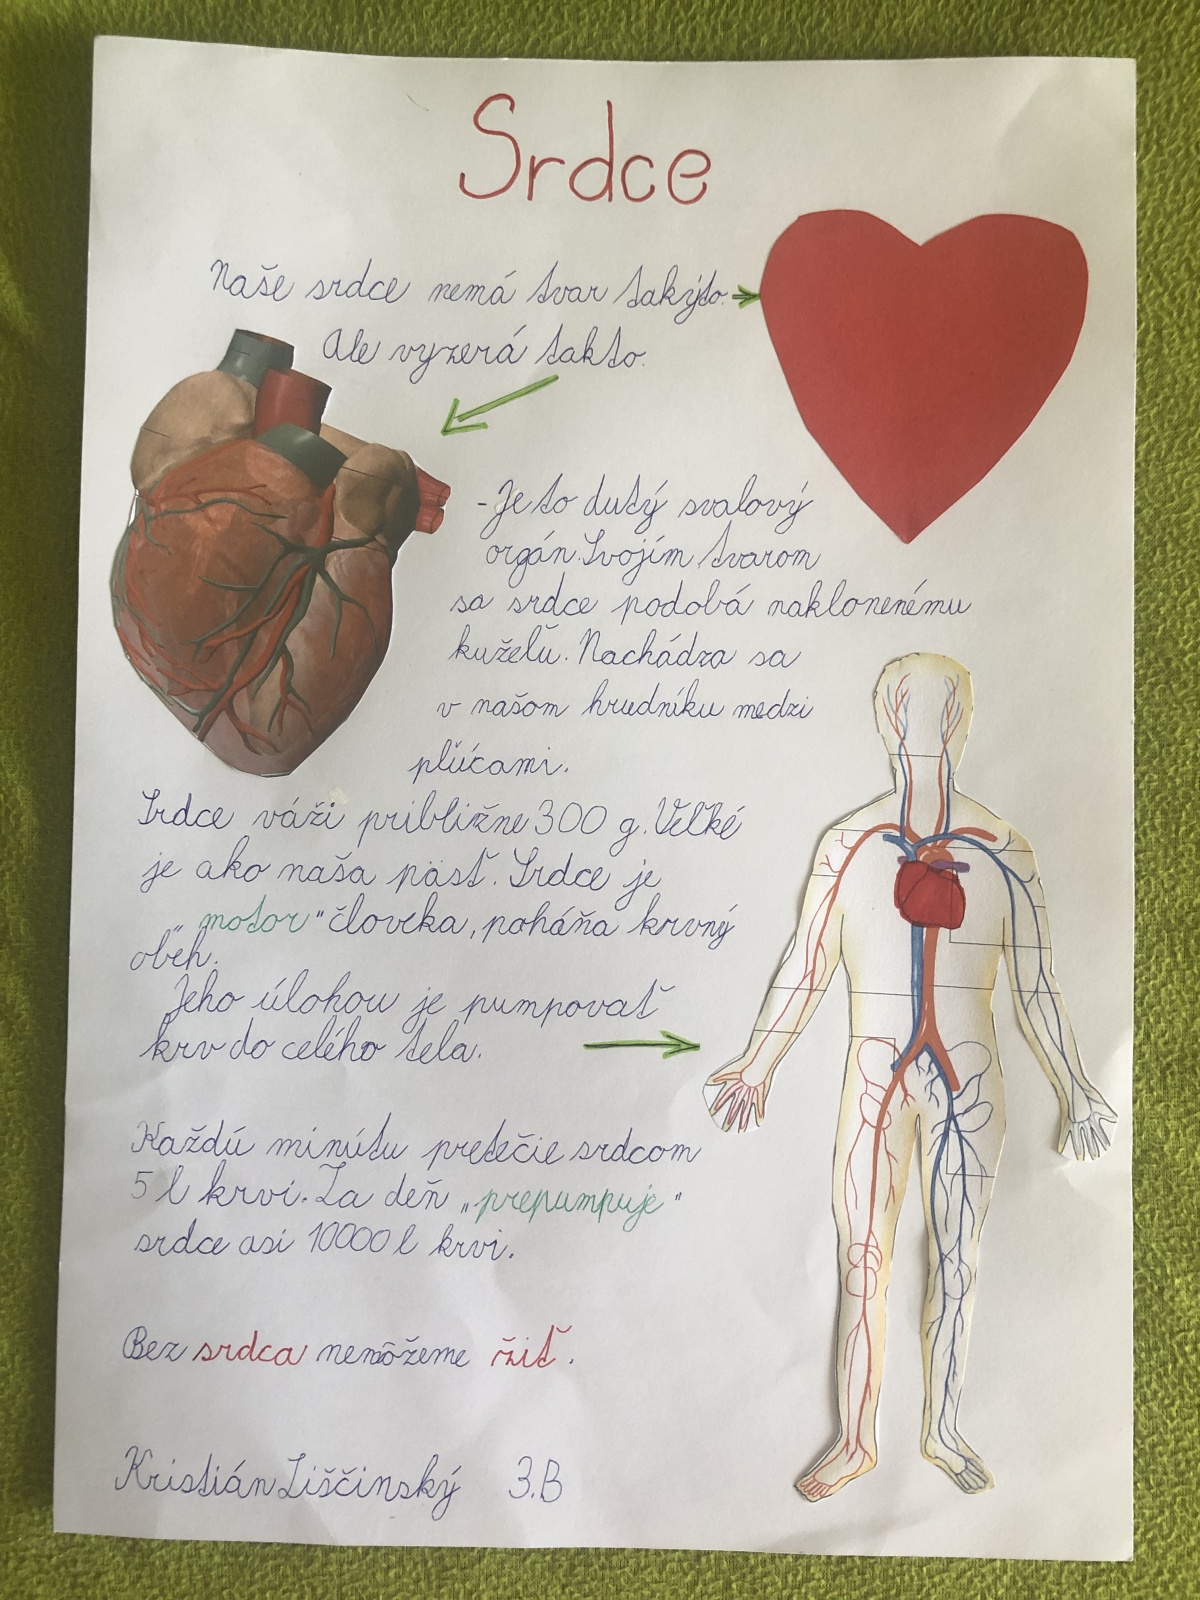 Srdce
Naše srdce nemá tvar takýto.
Ale vyzerá takto.
- Je to dutý svalový
orgán. Svojím tvarom
sa srdce podobá naklonenému
kužeľu. Nachádza sa
v našom hrudníku medzi
pľúcami.
Srdce váži približne 300 g. Veľké
je ako naša päsť. Srdce je
„motor" človeka, poháňa krvný
obeh.
Jeho úlohou je pumpovať
krv do celého tela.
Každú minútu pretečie srdcom
5 l krvi. Za deň „prepumpuje"
srdce asi 10000 l krvi.
Bez srdca nemôžeme žiť.
Kristián Liščinský 3.B